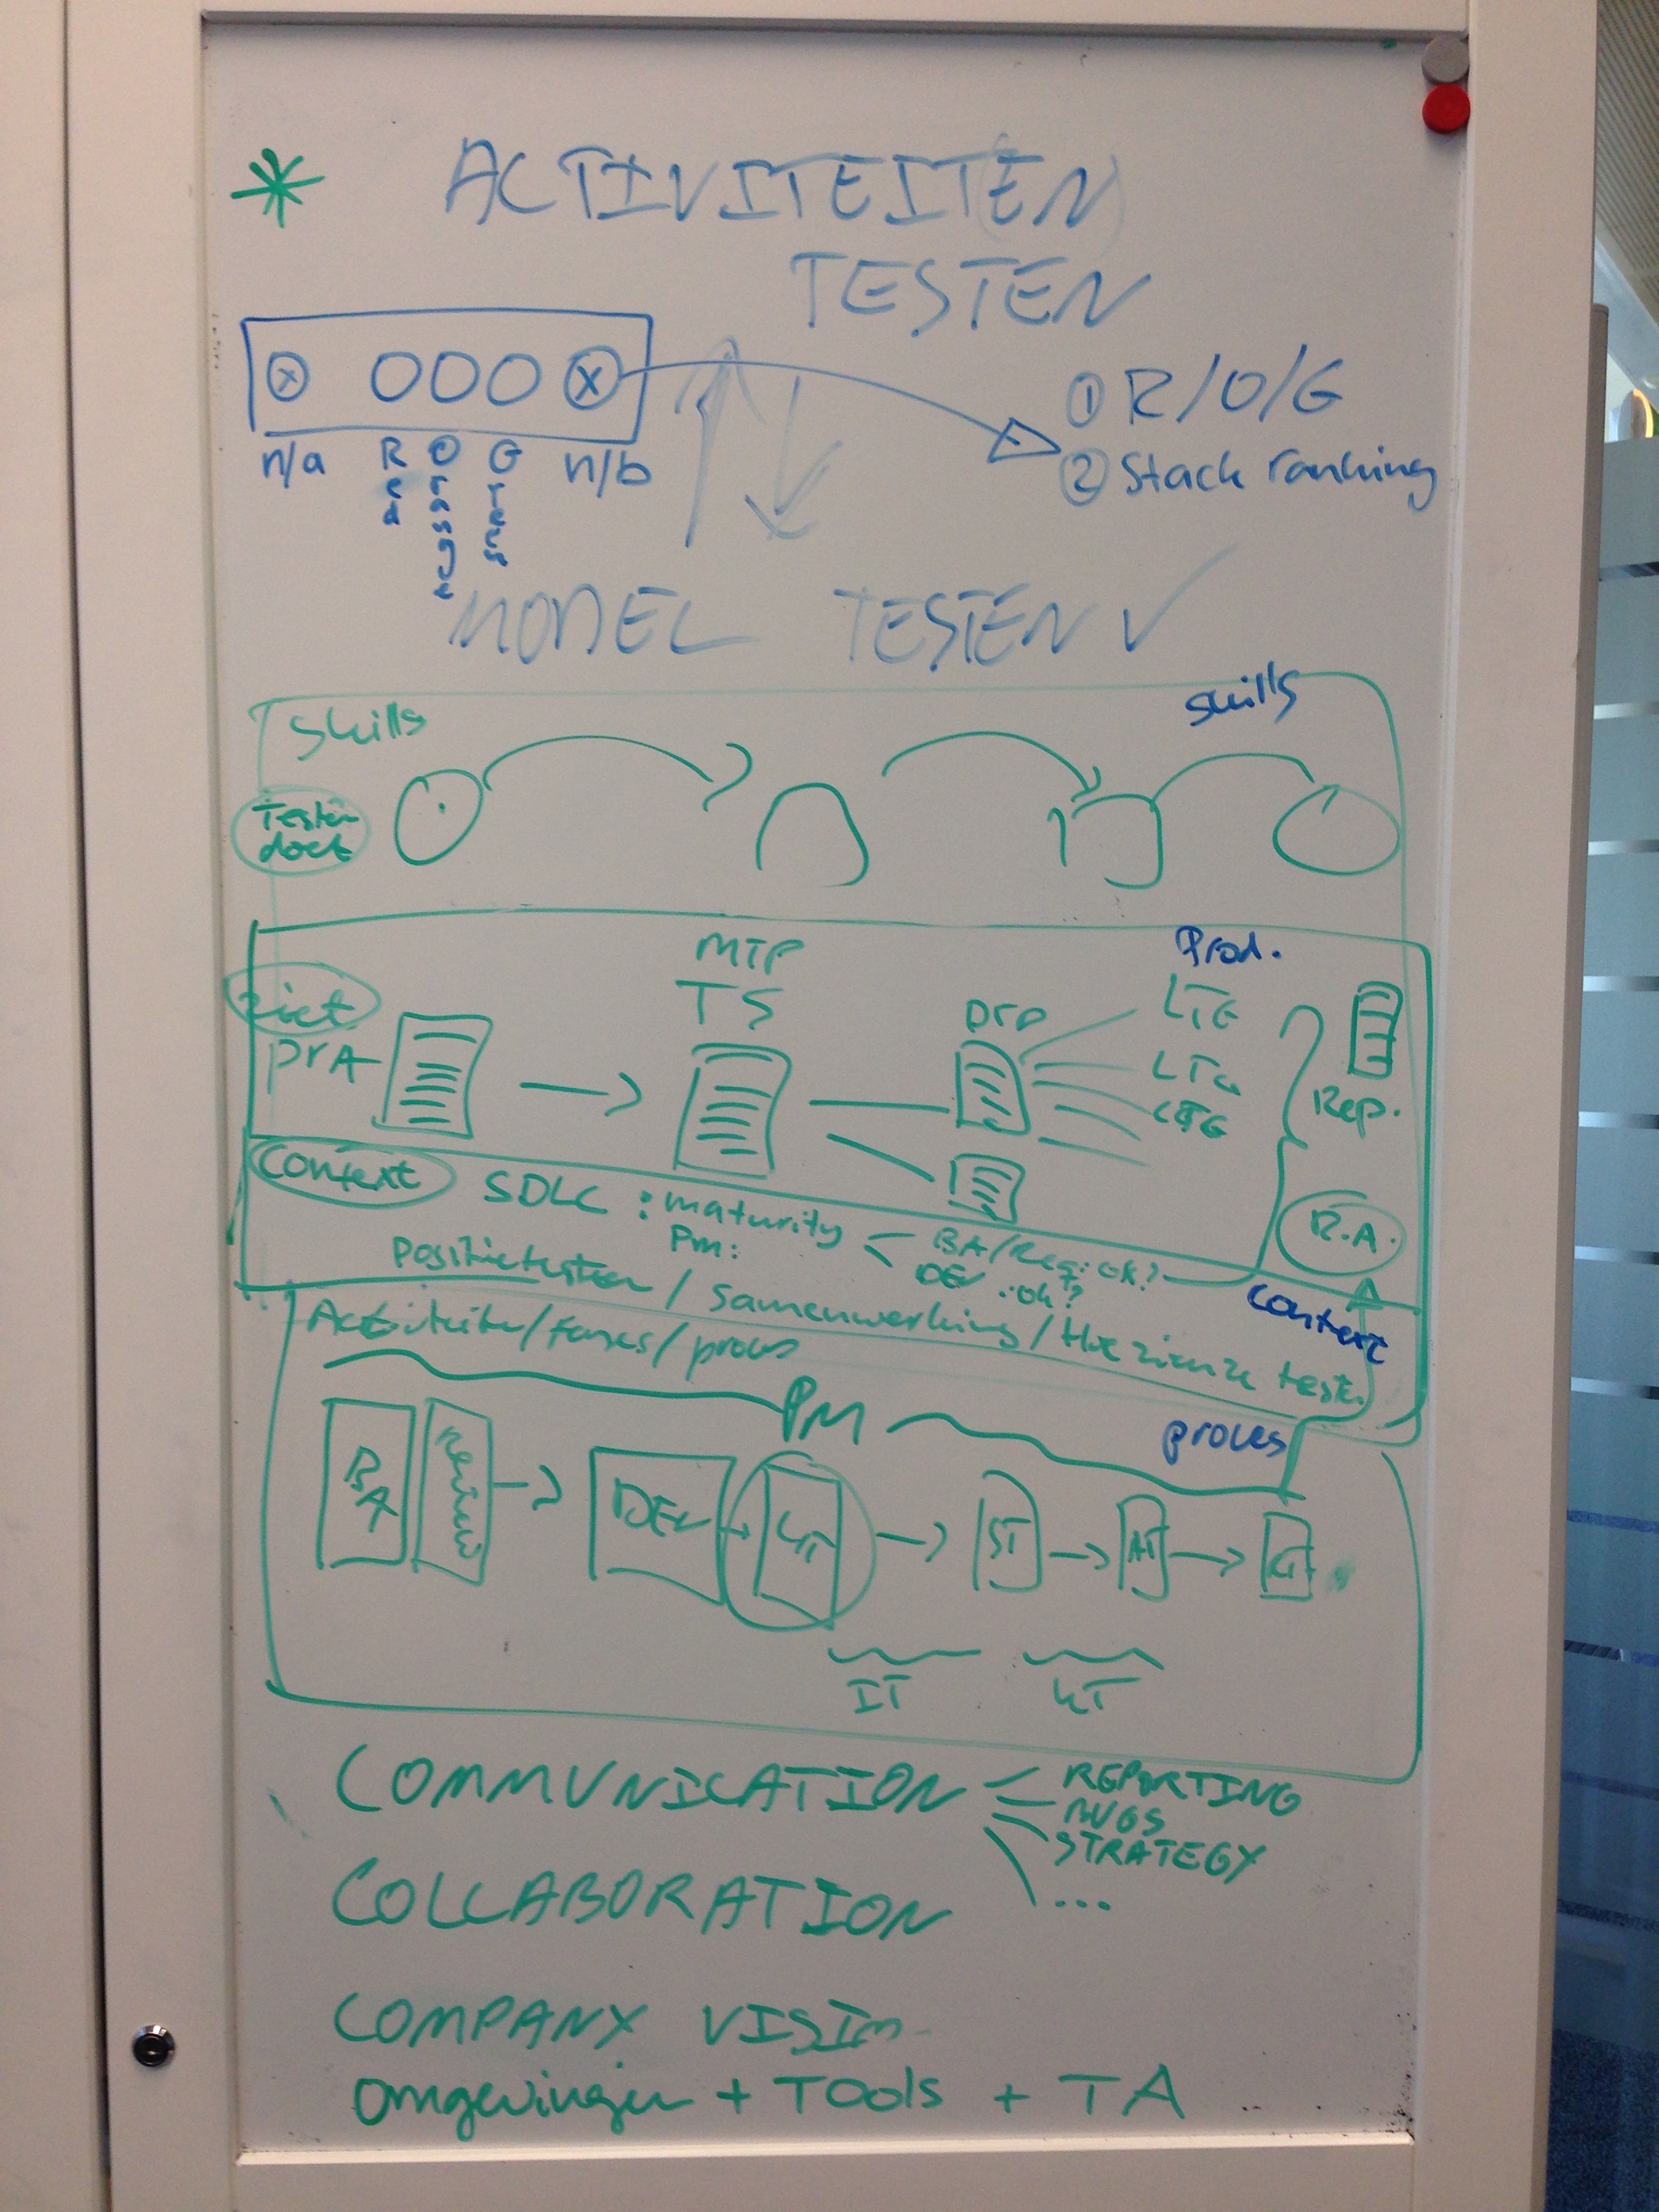 ACTIVITEITEN
TESTEN
n/a Red Orange Green n/b
① R/O/G
② Stack ranking
MODEL TESTEN ✓
skills
skills
MTP
TS
Prod.
PrA
DTP
LTG
LTG
LTG
Rep.
R.A.
Context
SDLC : maturity
BA/Req: ok?
DEV : ok?
PM:
Positie testen / samenwerking / Hoe zien ze test.
context
Activiteiten/fases/proces
PM
proces
BA
Review
DEV
UT
ST
AT
IT
COMMUNICATION
REPORTING
BUGS
STRATEGY
...
COLLABORATION
COMPANY VISION
omgevingen + TOOLS + TA